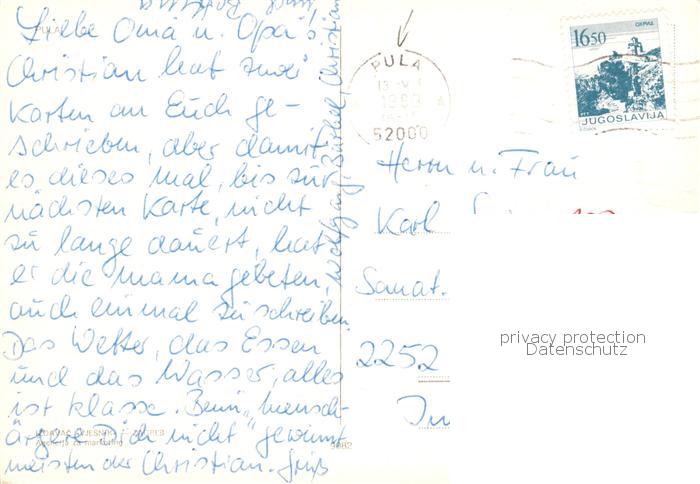 PULA
Liebe Oma u. Opa's
Christian hat zwei
Karten an Euch ge-
schrieben, aber damit
es dieses mal, bis zur
nächsten Karte, nicht
zu lange dauert, hat
er die mama gebeten,
auch einmal zu schreiben.
Das Wetter, das Essen
und das Wasser, alles
ist klasse. Beim "mensch-
ärgere Dich nicht" gewinnt
meisten der Christian. Gruß
Wolfgang, Bärbel, Christian
VJESNIK - ZAGREB
Agencija za marketing
9982
PULA
52000
16.50
OHRID
JUGOSLAVIJA
Herrn u. Frau
Karl
Sanat.
2252
privacy protection
Datenschutz